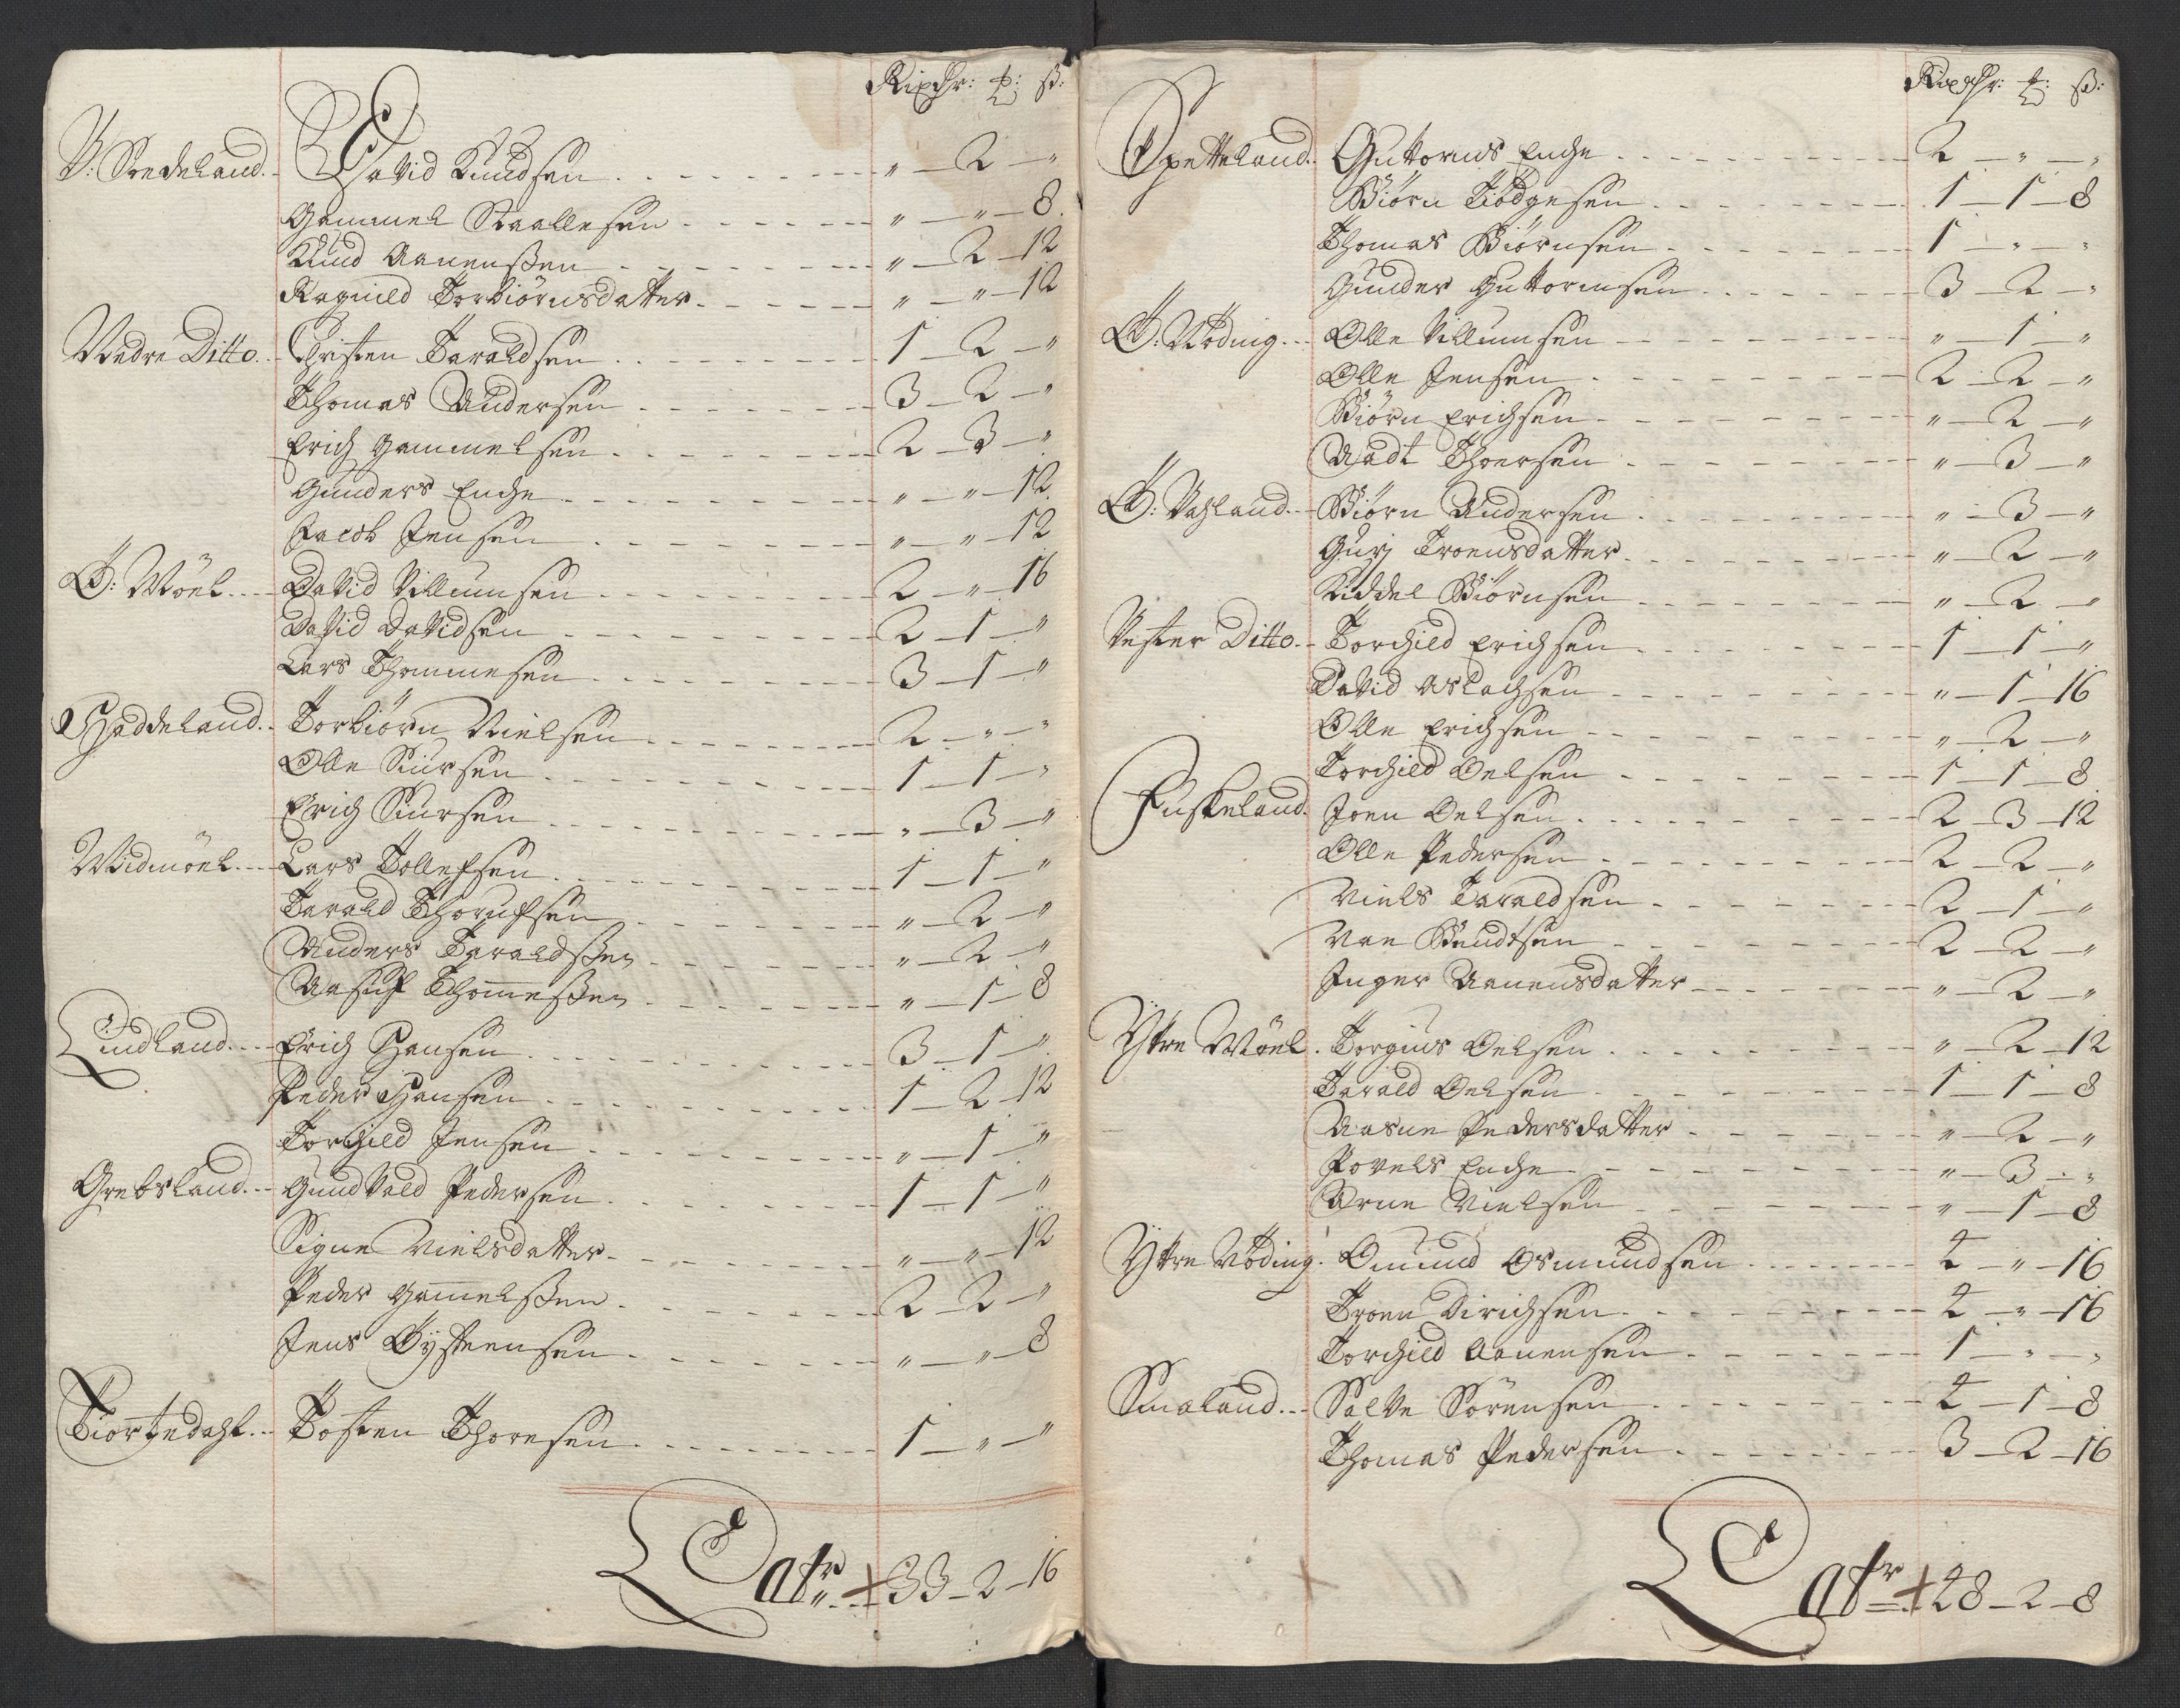 Rixdr: ₰: ß:
Ø: Svedeland. David Knudsen . . . „ — 2 — „
Gammel Staallesen . . . „ — „ — 8.
Knud Aanenßen . . . „ — 2 — 12
Ragnild Torbiørnsdatter . . . „ — „ — 12
Nedre Ditto . . Christen Taraldsen . . . 1 — 2 — „
Thomas Andersen . . . 3 — 2 — „
Erich Gammelsen . . . 2 — 3 — „
Gunders Enche . . . „ — „ — 12
Jacob Jensen . . . „ — „ — 12
Ø: Møel . . . David Villumsen . . . 2 — „ — 16
David Davidsen . . . 2 — 1 — „
Lars Thommesen . . . 3 — 1 — „
Haddeland . . Torbiørn Nielsen . . . 2 — „ — „
Olle Siursen . . . 1 — 1 — „
Erich Siursen . . . „ — 3 — „
Midmøel . . . Lars Tollefsen . . . 1 — 1 — „
Tarald Thorufsen . . . „ — 2 — „
Anders Taraldßen . . . „ — 2 — „
Aasuf Thomeßen . . . „ — 1 — 8
Lindland . . . Erich Hansen . . . 3 — 1 — „
Peder Hansen . . . 1 — 2 — 12
Torchild Jensen . . . „ — 1 — „
Grebsland . . Gundvald Pedersen . . . 1 — 1 — „
Signe Nielsdatter . . . „ — „ — 12
Peder Gamelßen . . . 2 — 2 — „
Jens Øysteensen . . . „ — „ — 8
Tiortedahl . . Tosten Thoresen . . . 1 — „ — „
Latr . . . 33 — 2 — 16
Rixdr: ₰: ß:
Spetteland . . Guttorms Enche . . . 2 — „ — „
Biørn Tiødgesen . . . 1 — 1 — 8
Thomas Biørnsen . . . 1 — „ — „
Gunder Guttormsen . . . 3 — 2 — „
Ø: Nøding . . . Olle Villumsen . . . „ — 1 — „
Olle Jensen . . . 2 — 2 — „
Biørn Erichsen . . . „ — 2 — „
Madt Thoersen . . . „ — 3 — „
Ø: Vahland . . Biørn Andersen . . . „ — 3 — „
Gurj Troensdatter . . . „ — 2 — „
Kiddel Biørnsen . . . „ — 2 — „
Vester Ditto . . Torchild Erichsen . . . 1 — 1 — „
David Aslachsen . . . „ — 1 — 16
Olle Erichsen . . . „ — 2 — „
Torchild Oelsen . . . 1 — 1 — 8
Fuskeland. Joen Oelsen . . . 2 — 3 — 12
Olle Pedersen . . . 2 — 2 — „
Niels Taraldsen . . . 2 — 1 — „
Aae Bendtsen . . . 2 — 2 — „
Inger Aanensdatter . . . „ — 2 — „
Yttre Møel . Torgius Oelsen . . . „ — 2 — 12
Tarald Oelsen . . . 1 — 1 — 8
Aasne Pedersdatter . . . „ — 2 — „
Povels Enche . . . „ — 3 — „
Arne Nielsen . . . „ — 1 — 8
Yttre Nøding . Omund Osmundsen . . . 2 — „ — 16
Troen Dirichsen . . . 2 — „ — 16
Torchild Aanensen . . . 1 — „ — „
Smaland . . . Salve Sørensen . . . 2 — 1 — 8
Thomas Pedersen . . . 3 — 2 — 16
Latr . . . 28 — 2 — 8